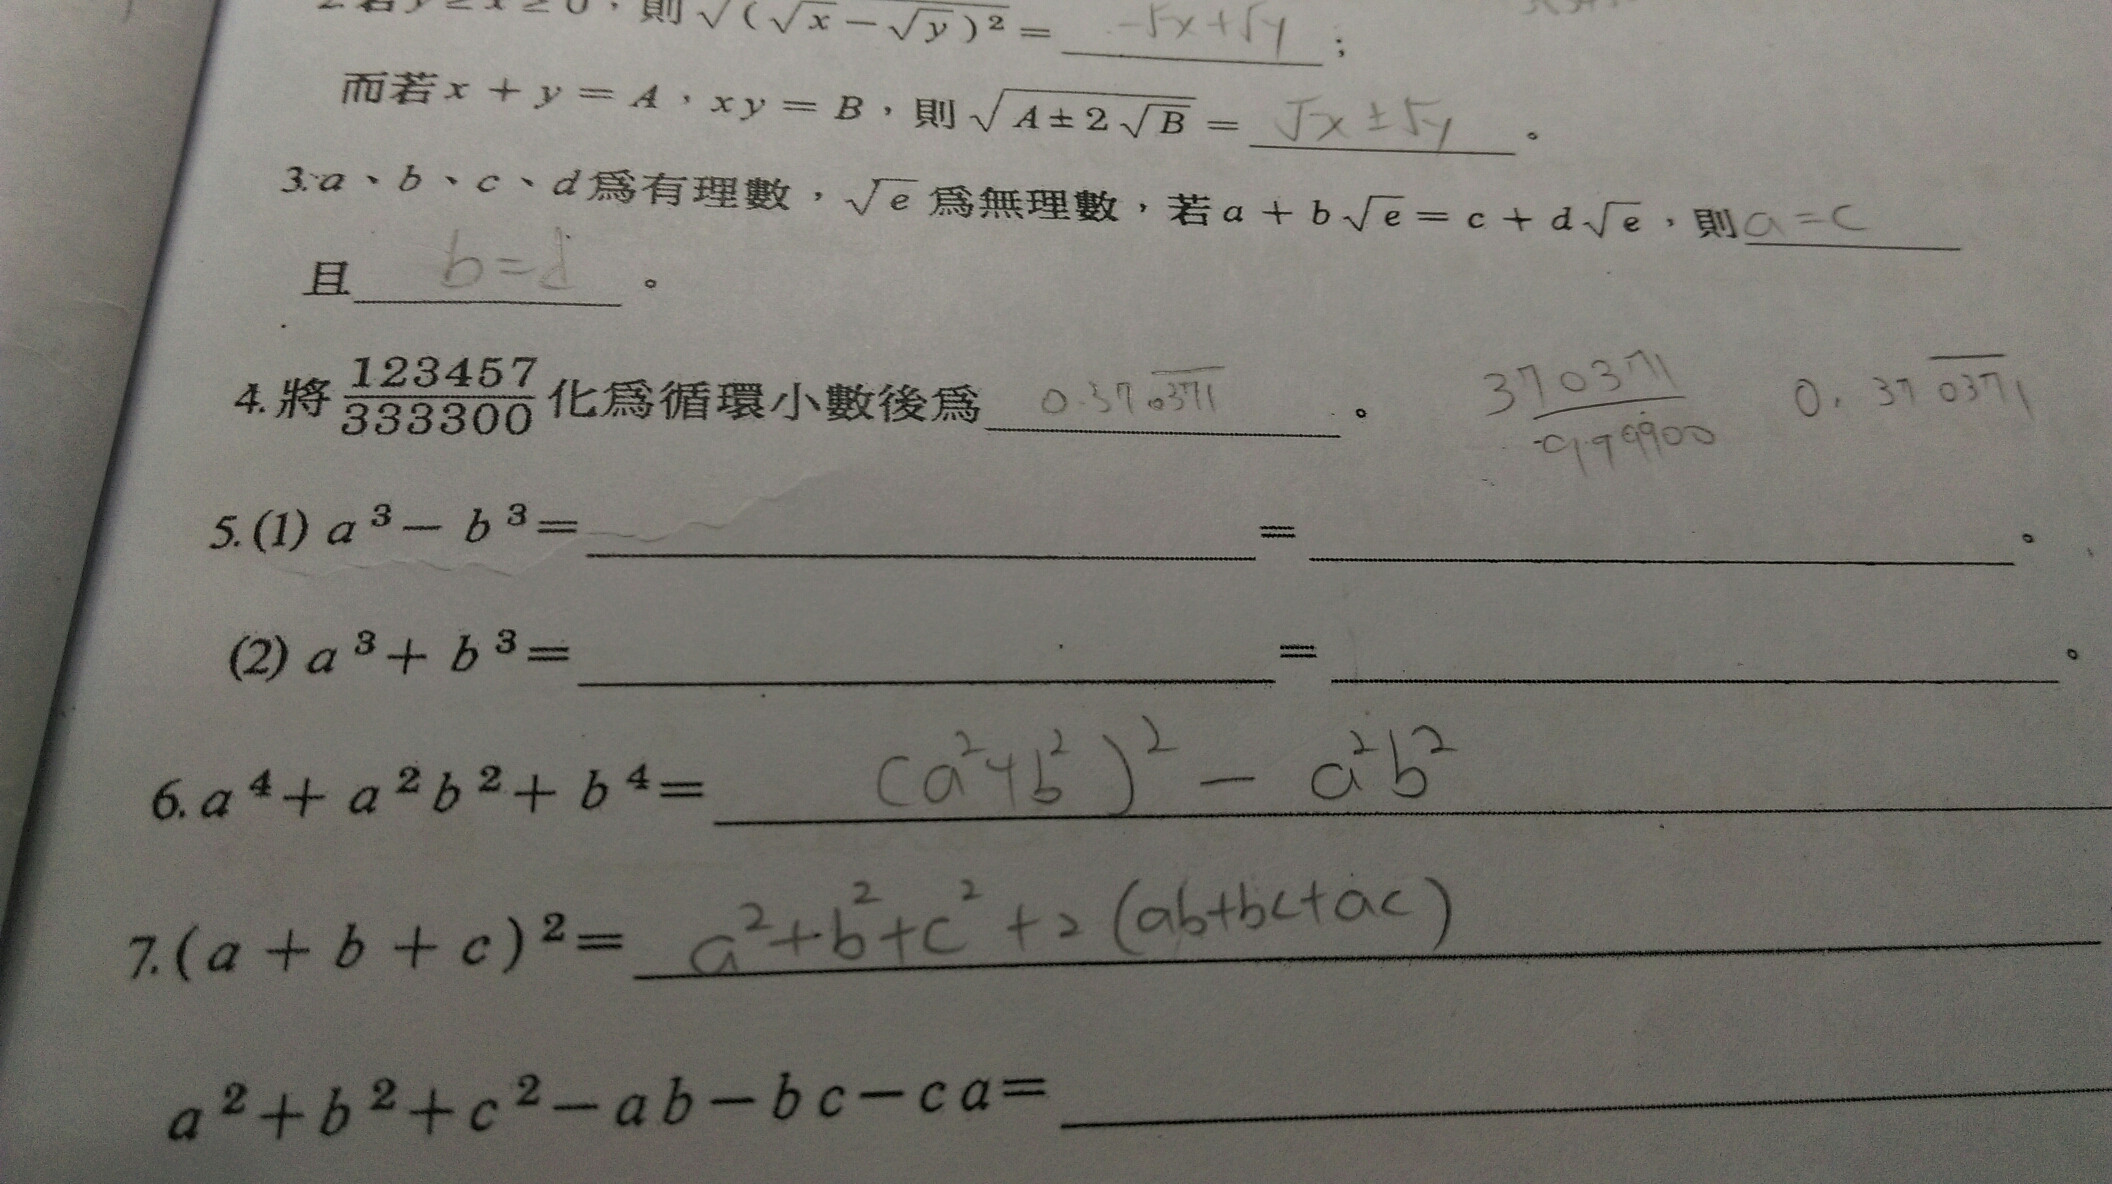 2.若y≥x≥0，則√(√x−√y)² = -√x+√y ；
而若x + y = A，xy = B，則√A±2√B = √x±√y 。
3.a、b、c、d為有理數，√e 為無理數，若a + b√e = c + d√e，則a=c
且 b=d 。
4.將 123457/333300 化為循環小數後為 0.37\overline{0371} 。 370371/999900 0.37\overline{0371}
5.(1) a³− b³= = 。
(2) a³+ b³= = 。
6.a⁴+ a²b²+ b⁴= (a²+b²)² − a²b²
7.(a + b + c)²= a²+b²+c²+2(ab+bc+ac)
a²+b²+c²−ab−bc−ca=